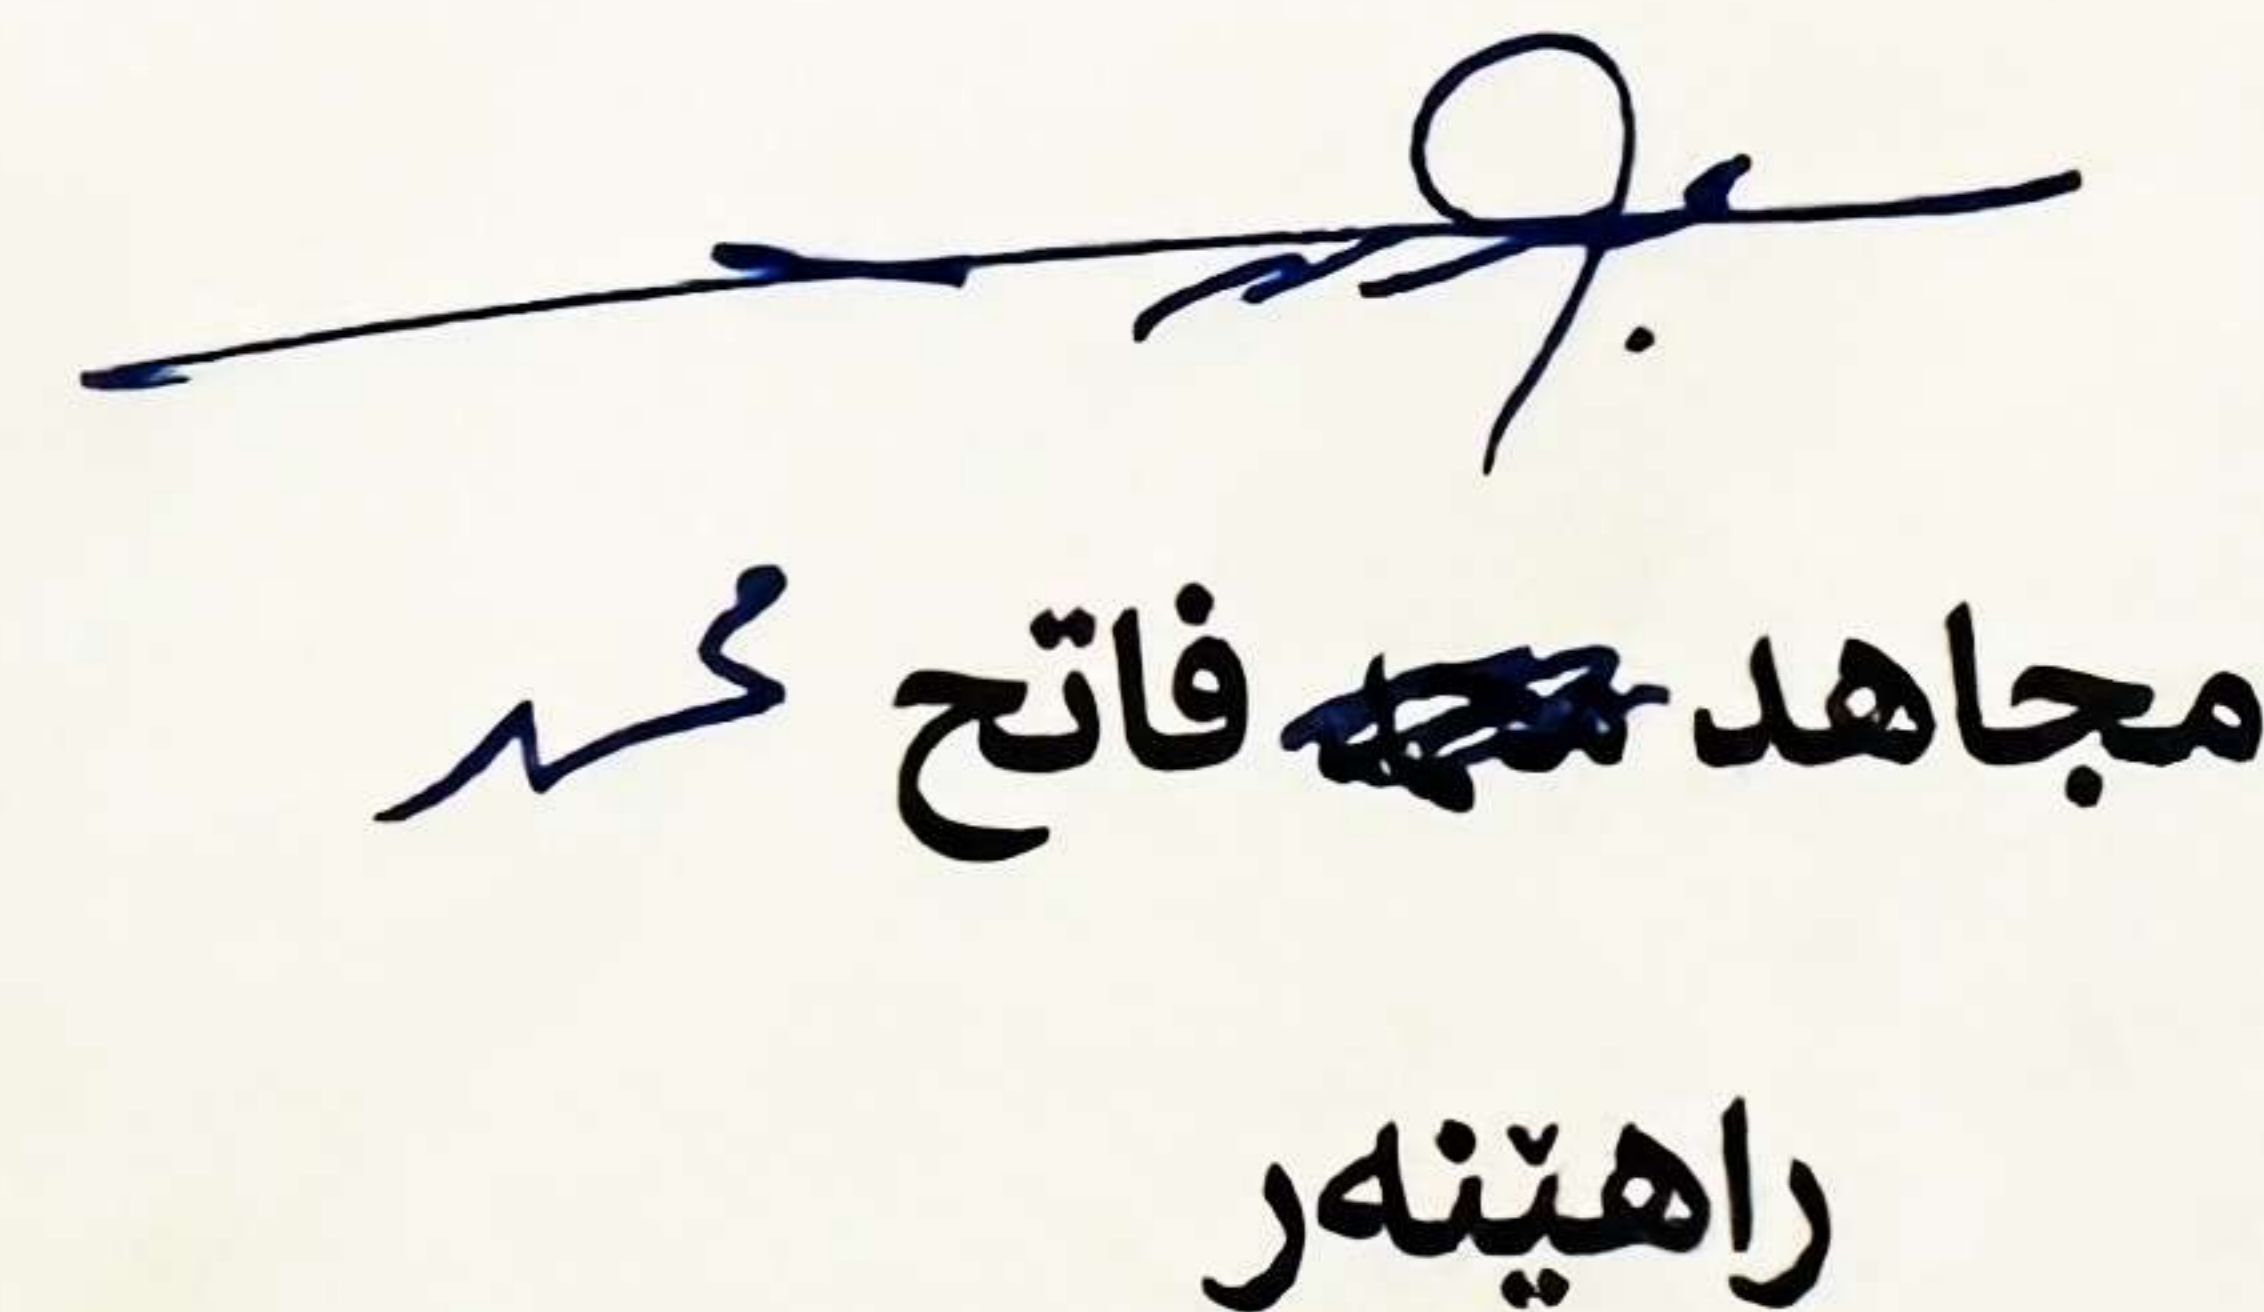 مجاهد فاتح محمد
راهێنەر